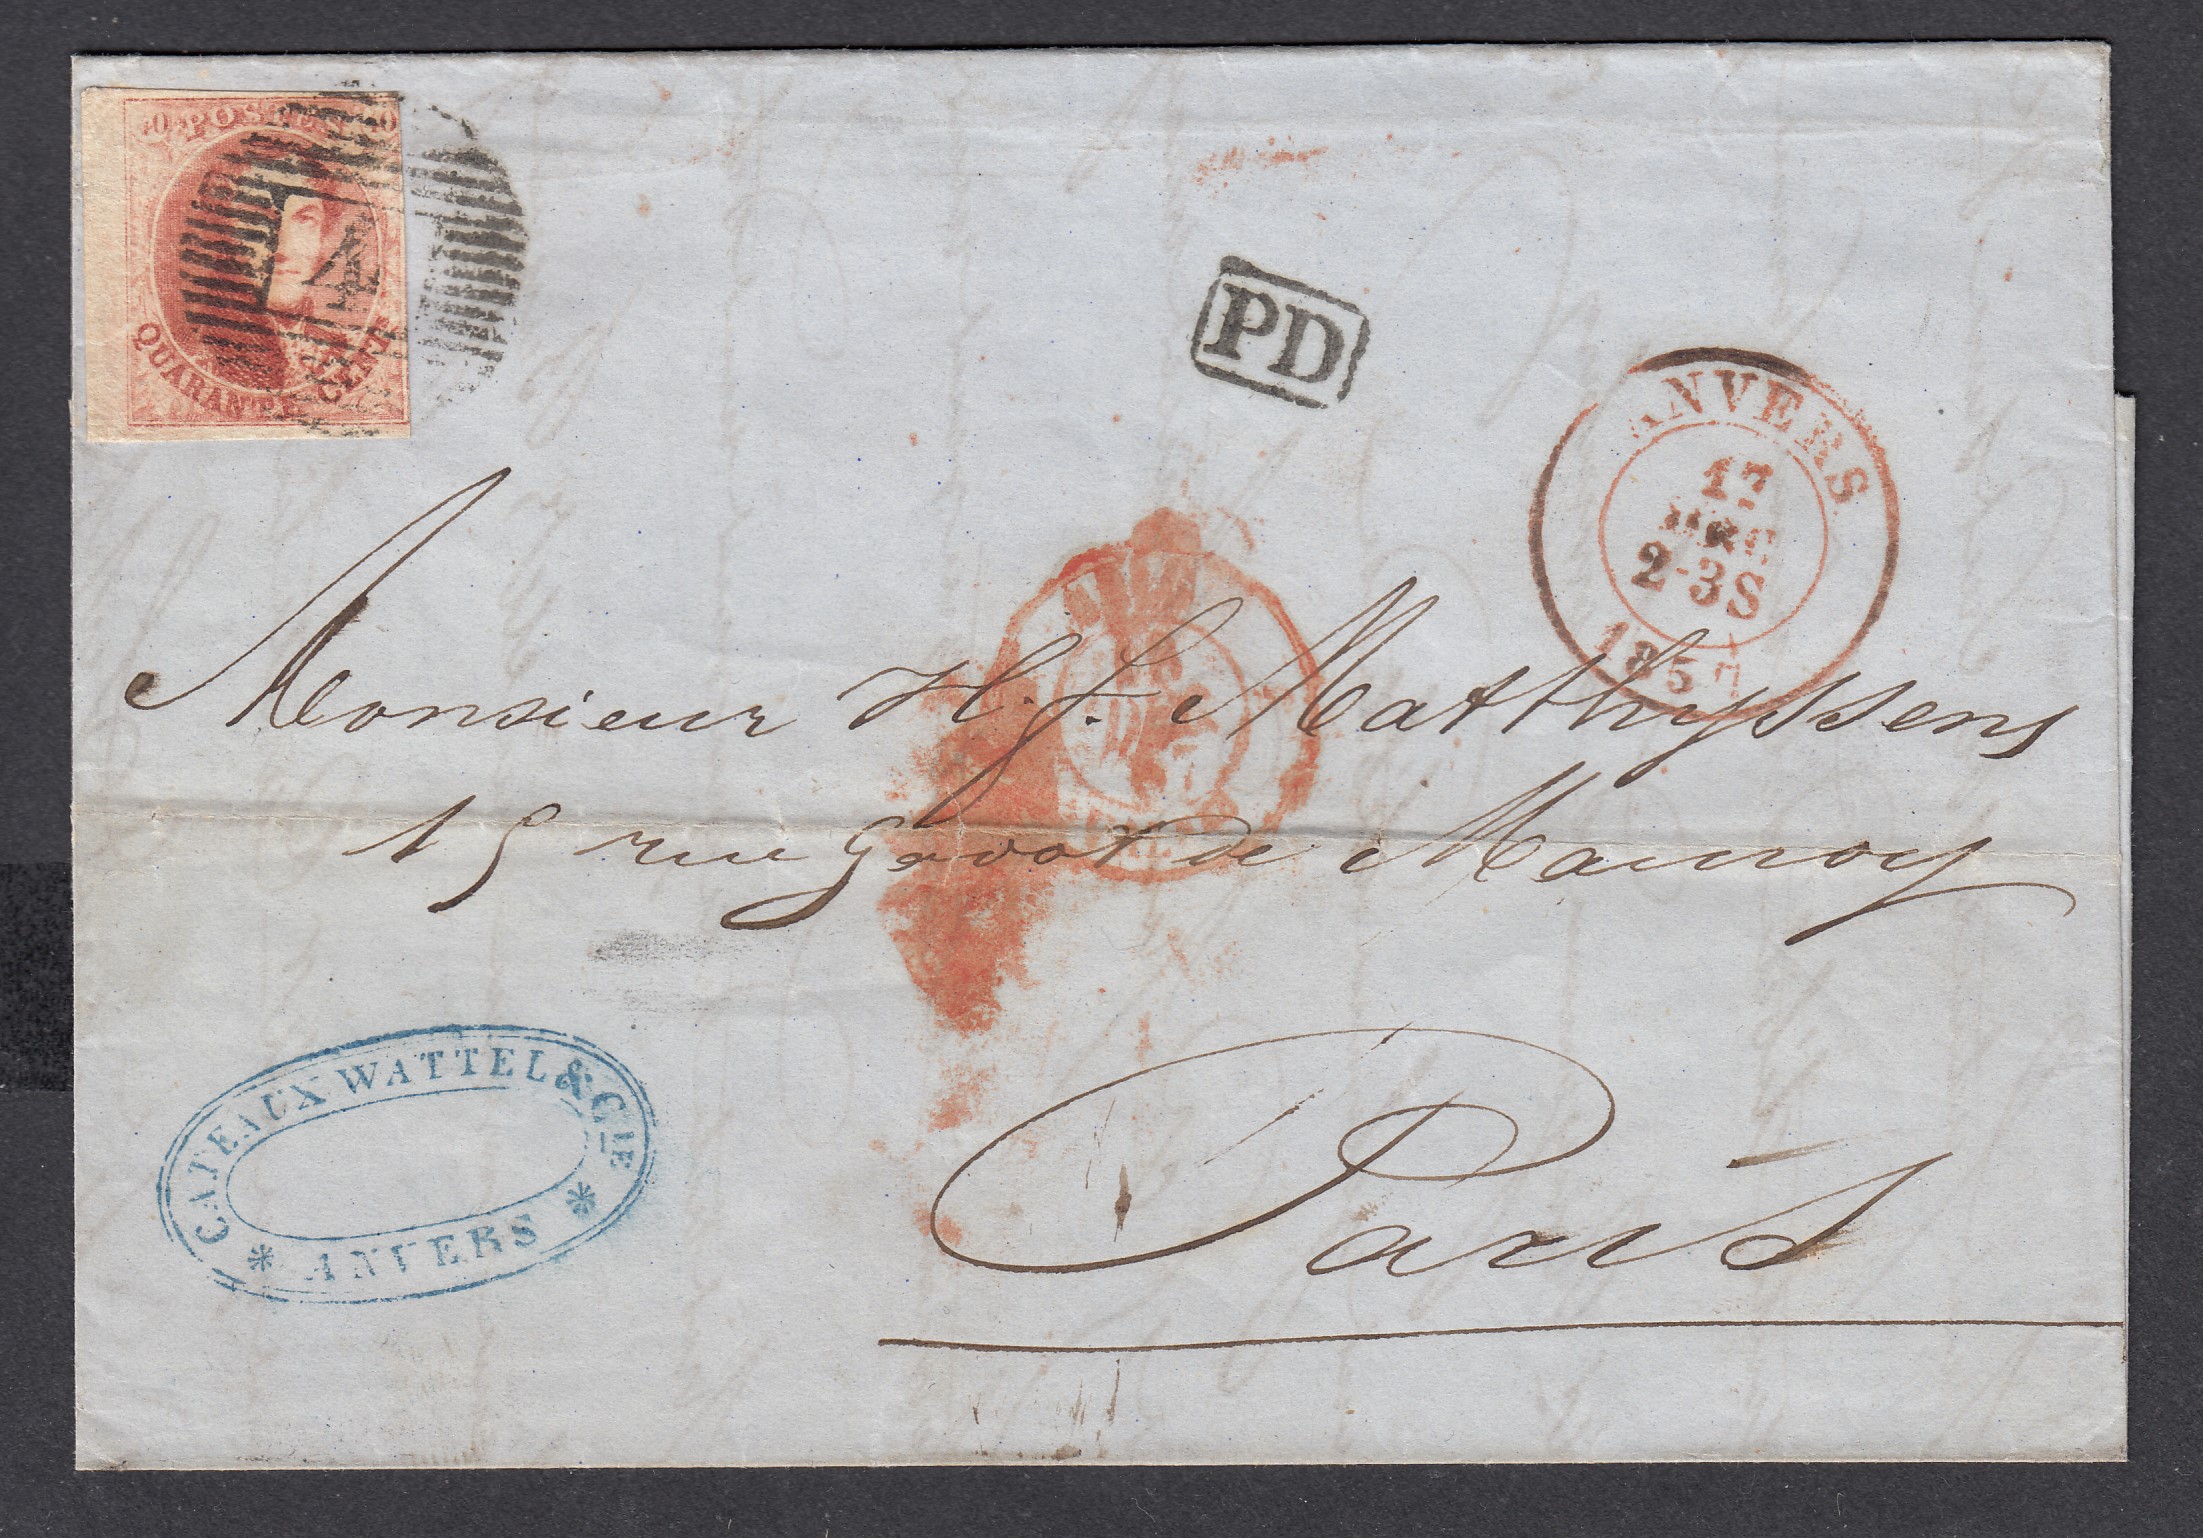 POSTES
4
QUARANTE CENTS
PD
ANVERS
17
DEC
2-3S
1857
Monsieur H. J. Matthyssens
15 rue Gevot de Mauroy
Paris
CATEAUX WATTEL & CIE
* ANVERS *